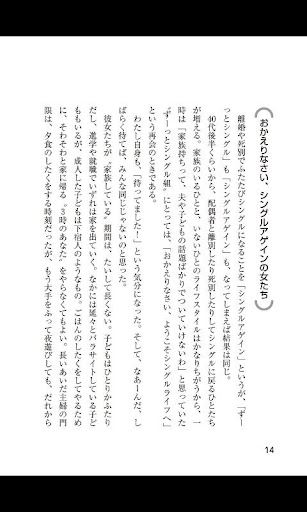 おかえりなさい、シングルアゲインの女たち
離婚や死別でふたたびシングルになることを「シングルアゲイン」というが、「ずー
っとシングル」も「シングルアゲイン」も、なってしまえば結果は同じ。
40代後半くらいから、配偶者と離別したり死別したりしてシングルに戻るひとたち
が増える。家族のいるひとと、いないひとのライフスタイルはかなりちがうから、一
時は「家族持ちって、夫や子どもの話題ばかりでついていけないわ」と思っていた
〝ずーっとシングル組〟にとっては、「おかえりなさい、ようこそシングルライフへ」
という再会のときである。
わたし自身も、「待ってました!」という気分になった。そして、なあーんだ、し
ばらく待てば、みんな同じじゃないのと思った。
彼女たちが〝家族している〟期間は、たいして長くない。子どもはひとりかふたり
だし、進学や就職でいずれは家を出ていく。なかには延々とパラサイトしている子ど
ももいるが、成人した子どもは下宿人のようなもの。ごはんのしたくをしてやるため
に、そわそわと家に帰る〝3時のあなた〟をやらなくてもよい。長いあいだ主婦の門
限は、夕食のしたくをする時刻だったが、もう大手をふって夜遊びしても、だれから
14